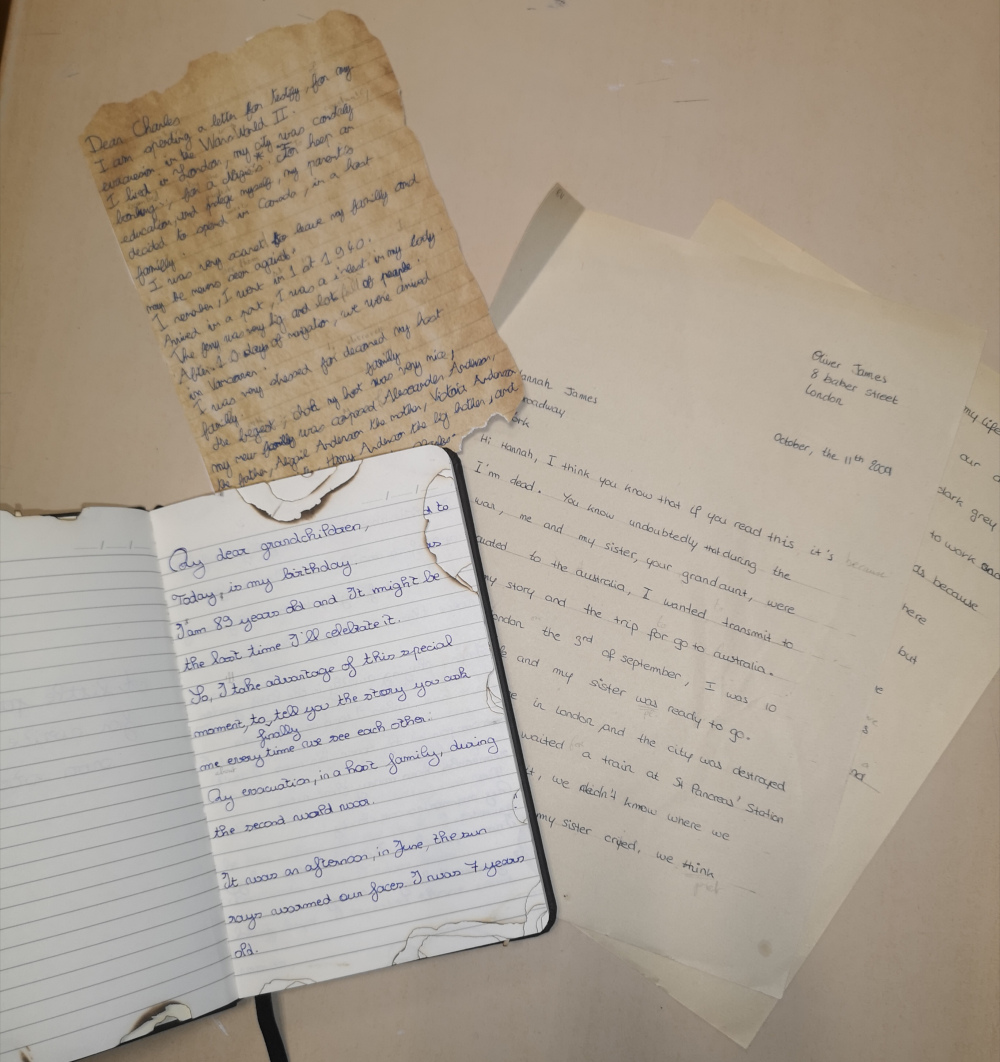 Dear Charles
I am spending a letter for testify, for my
evacuation in the Wars World II.
I lived in London, my city was cordialy
bombing, for a
education, and my parents
decided to spend in Canada, in a host
familly
I was very scared to leave my familly and
may be never seen against.
I remember, I went in 1 at 1940.
Arrived in a port, I was a in my body
The ferry was very big and lot full of people.
After 10 days of navigation, we were arrived
in Vancouver.
I was very for my host
familly
the biggest, my host familly was very nice,
my new familly was composed Alexander Anderson,
the father, Abigail Anderson the mother, Victoria Anderson
Harry Anderson the big brother, and
My dear grandchildren,
Today, is my birthday.
I'am 89 years old and It might be
the last time I'll celebrate it.
So, I take advantage of this special
moment, to tell you the story you ask
finally
me every time we see each other:
My evacuation, in a host family, during
the second world war.
It was an afternoon, in June, the sun
rays warmed our faces. I was 7 years
old.
to
Oliver James
8 baker street
London
annah James
roadway
ork
October, the 11th 2009
Hi Hannah, I think you know that if you read this it's because
I'm dead. You know undoubtedly that during the
was, me and my sister, your grandaunt, were
uated to the australia, I wanted transmit to
my story and the trip for go to australia.
ondon the 3rd of september, I was 10
and my sister was ready to go.
e in London and the city was destroyed
waited for a train at St Pancreas' Station
t, we didn't know where we
my sister cryed, we think
put
my life
our
dark grey
to work
Is because
here
but